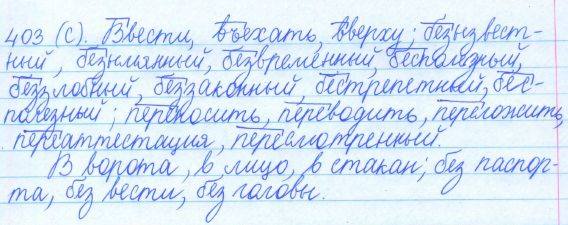 403 (с). Ввести, въехать, вверху; безызвест-
ный, безымянный, безвременный, бесполезный,
беззлобный, беззаконный, бестрепетный, бес-
полезный; переносить, переводить, переложить,
переаттестация, пересмотренный.
В ворота, в лицо, в стакан; без паспор-
та, без вести, без головы.